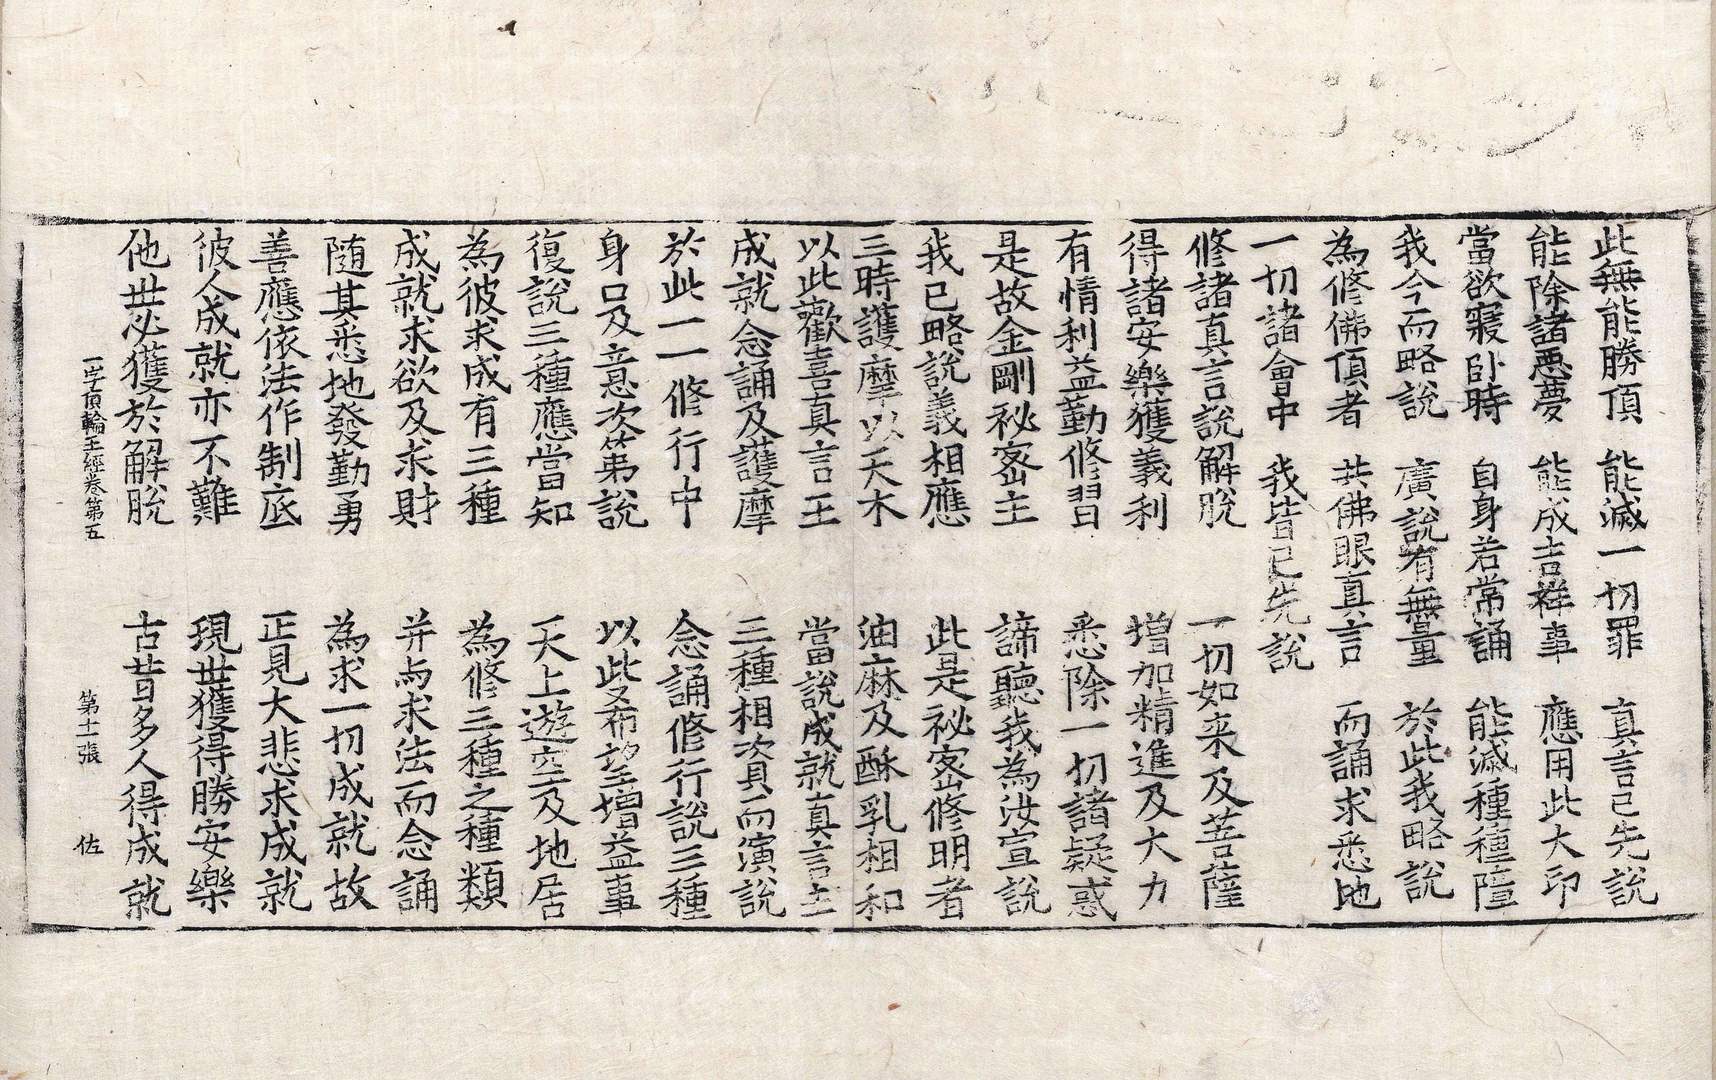 此無能勝頂　能滅一切罪　真言已先說
能除諸惡夢　能成吉祥事　應用此大印
當欲寢卧時　自身若常誦　能滅種種障
我今而略說　廣說有無量　於此我略說
為修佛頂者　共佛眼真言　而誦求悉地
一切諸會中　我皆已先說
修諸真言說解脫　一切如来及菩薩
得諸安樂獲義利　增加精進及大力
有情利益勤修習　悉除一切諸疑惑
是故金剛祕密主　諦聽我為汝宣說
我已略說義相應　此是祕密修明者
三時護摩以天木　油麻及酥乳相和
以此歡喜真言王　當說成就真言主
成就念誦及護摩　三種相次而演說
於此一一修行中　念誦修行說三種
身口及意次第說　以此希望增益事
復說三種應當知　天上遊空及地居
為彼求成有三種　為修三種之種類
成就求欲及求財　并与求法而念誦
隨其悉地發勤勇　為求一切成就故
善應依法作制底　正見大悲求成就
彼人成就亦不難　現世獲得勝安樂
他世必獲於解脫　古昔多人得成就
一字頂輪王經卷第五　第十一張　佐